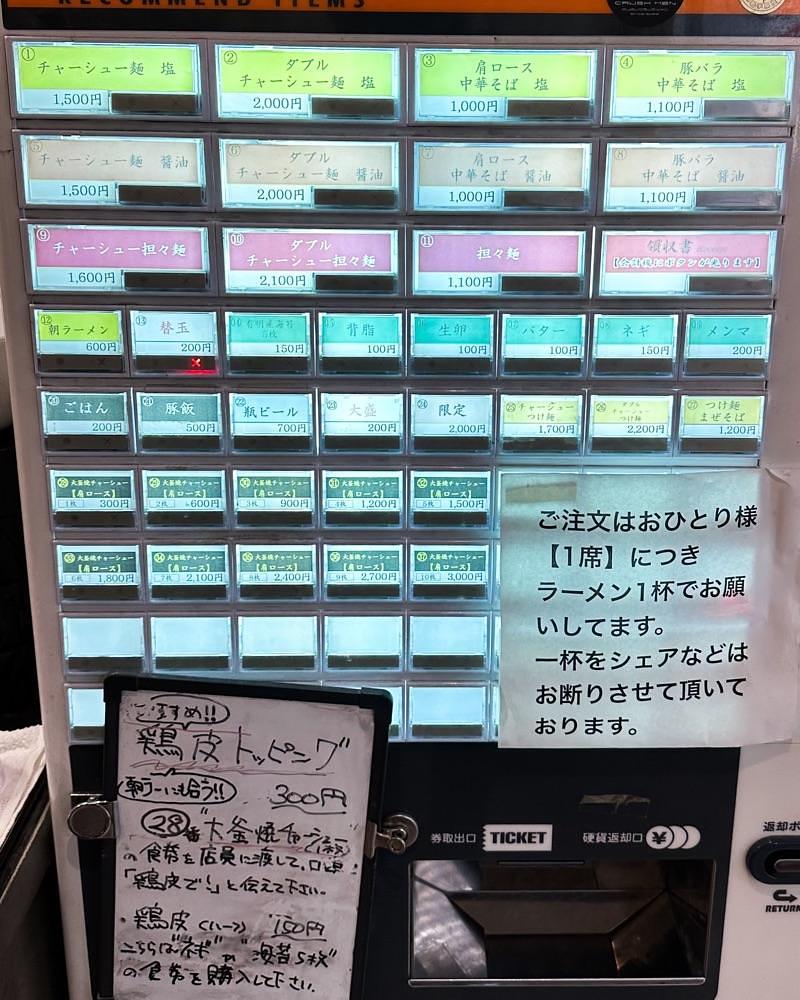 RECOMMEND ITEMS
CRUSH MEN
① チャーシュー麺 塩
1,500円
② ダブル
チャーシュー麺 塩
2,000円
③ 肩ロース
中華そば 塩
1,000円
④ 豚バラ
中華そば 塩
1,100円
⑤ チャーシュー麺 醤油
1,500円
⑥ ダブル
チャーシュー麺 醤油
2,000円
⑦ 肩ロース
中華そば 醤油
1,000円
⑧ 豚バラ
中華そば 醤油
1,100円
⑨ チャーシュー担々麺
1,600円
⑩ ダブル
チャーシュー担々麺
2,100円
⑪ 担々麺
1,100円
領収書
【会計後にボタンが光ります】
⑫ 朝ラーメン
600円
⑬ 替玉
200円
150円
背脂
100円
生卵
100円
バター
100円
ネギ
150円
メンマ
200円
⑳ ごはん
200円
㉑ 豚飯
500円
㉒ 瓶ビール
700円
㉓ 大盛
200円
㉔ 限定
2,000円
㉕ チャーシュー
つけ麺
1,700円
㉖ ダブル
チャーシュー
つけ麺
2,200円
㉗ つけ麺
まぜそば
1,200円
㉘ 大釜焼チャーシュー
【肩ロース】
1枚 300円
㉙ 大釜焼チャーシュー
【肩ロース】
2枚 600円
㉚ 大釜焼チャーシュー
【肩ロース】
3枚 900円
㉛ 大釜焼チャーシュー
【肩ロース】
4枚 1,200円
㉜ 大釜焼チャーシュー
【肩ロース】
5枚 1,500円
㉝ 大釜焼チャーシュー
【肩ロース】
6枚 1,800円
㉞ 大釜焼チャーシュー
【肩ロース】
7枚 2,100円
㉟ 大釜焼チャーシュー
【肩ロース】
8枚 2,400円
㊱ 大釜焼チャーシュー
【肩ロース】
9枚 2,700円
㊲ 大釜焼チャーシュー
【肩ロース】
10枚 3,000円
ご注文はおひとり様
【1席】につき
ラーメン1杯でお願
いしてます。
一杯をシェアなどは
お断りさせて頂いて
おります。
おすすめ!!
鶏皮トッピング
朝ラーにも合う!! 300円
28番"大釜焼チャーシュー
の食券を店員に渡して、口頭
「鶏皮で!」と伝えて下さい。
・鶏皮(ハーフ) 150円
こちらは"ネギ"か"海苔5枚"
の食券を購入して下さい。
券取出口 TICKET 硬貨返却口 ¥
返却ボ
RETURN